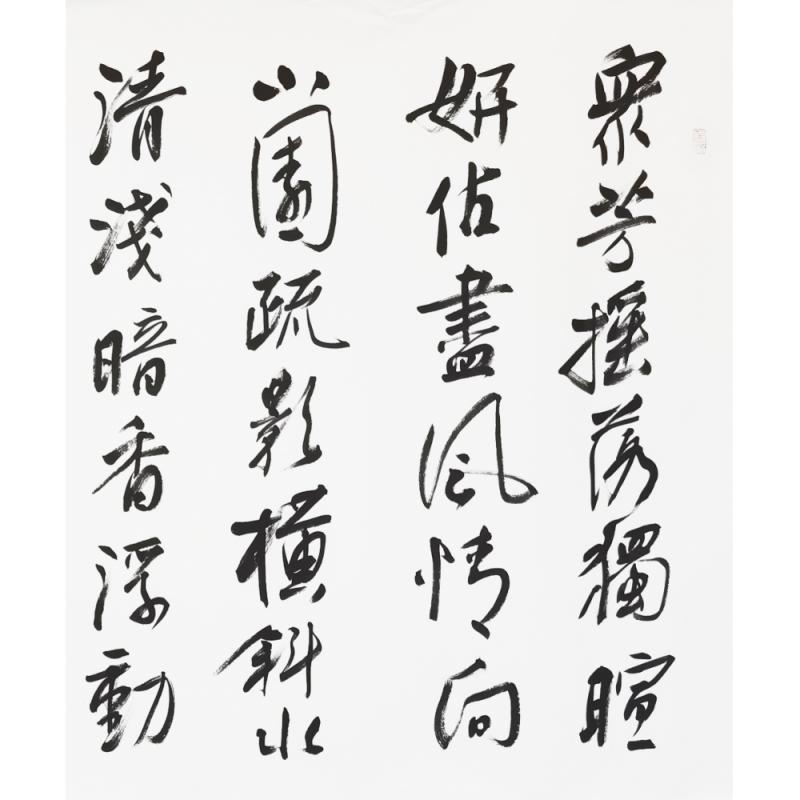 眾芳摇落獨暄
妍佔盡風情向
小園疏影橫斜水
清淺暗香浮動